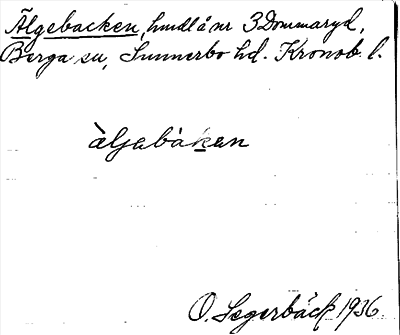 Älgebacken, hmdl å nr 3 Dommaryd,
Berga sn, Sunnerbo hd. Kronob. l.
àljabàkan
O. Segerbäck 1936.